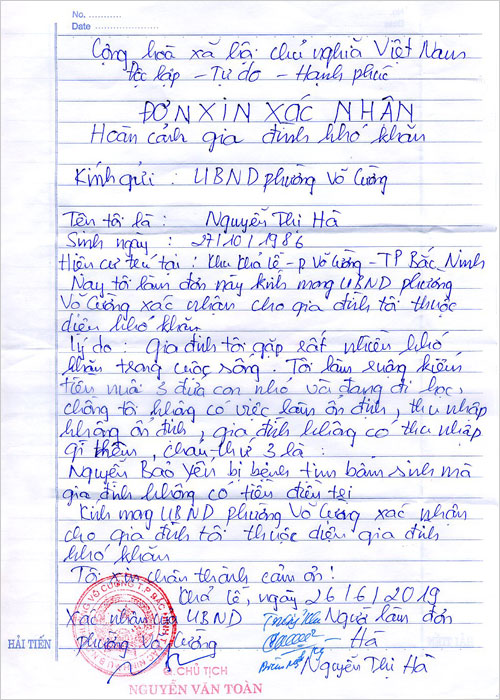 No.
Date
Cộng hoà xã hội chủ nghĩa Việt Nam
Độc lập - Tự do - Hạnh phúc
ĐƠN XIN XÁC NHẬN
Hoàn cảnh gia đình khó khăn
Kính gửi : UBND phường Võ Cường
Tên tôi là : Nguyễn Thị Hà
Sinh ngày : 27/10/1986
Hiện cư trú tại : Khu Khả Lễ - p Võ Cường - TP Bắc Ninh
Nay tôi làm đơn này kính mong UBND phường
Võ Cường xác nhận cho gia đình tôi thuộc
diện khó khăn
Lý do : Gia đình tôi gặp rất nhiều khó
khăn trong cuộc sống. Tôi làm ruộng kiếm
tiền nuôi 3 đứa con nhỏ và đang đi học,
chồng tôi không có việc làm ổn định, thu nhập
không ổn định, gia đình không có thu nhập
gì thêm, cháu thứ 3 là :
Nguyễn Bảo Yến bị bệnh tim bẩm sinh mà
gia đình không có tiền điều trị
Kính mong UBND phường Võ Cường xác nhận
cho gia đình tôi thuộc diện gia đình
khó khăn
Tôi xin chân thành cảm ơn!
Khả Lễ, ngày 26/6/2019
Xác nhận của UBND Người làm đơn
phường Võ Cường Hà
Nguyễn Thị Hà
CHỦ TỊCH
NGUYỄN VĂN TOÀN
HẢI TIẾN